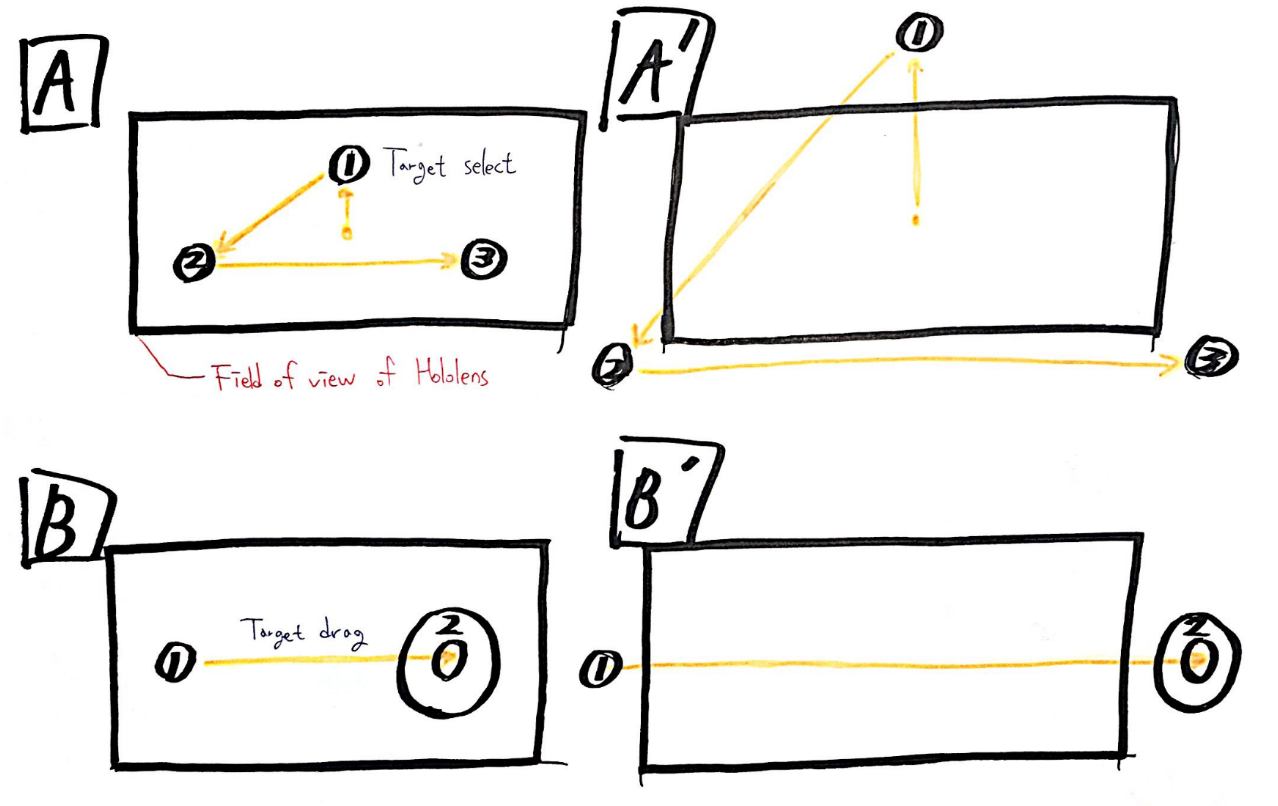 A
A'
① Target select
①
② ③
Field of view of Hololens
② ③
B
B'
Target drag
① 2
0
① 2
0